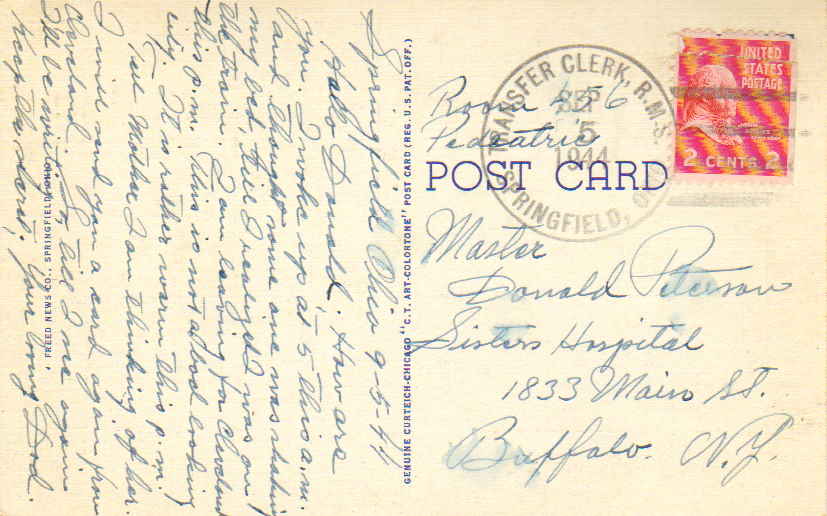 Springfield Ohio 9-5-44
Hello Donald; How are
you. I woke up at 5 this a.m.
and thought some one was shaking
my bed, first I realized I was on
the train. I am leaving for Cleveland
this p.m. This is not a bad looking
city. It is rather warm this p.m.
Tell Mother I am thinking of her.
I will send you a card again from
Cleveland. So, till I see again
I'll be
keep the secret. Your loving Dad.
FREED NEWS CO., SPRINGFIELD, OHIO
GENUINE CURTEICH-CHICAGO "C.T. ART-COLORTONE" POST CARD (REG. U.S. PAT. OFF.)
TRANSFER CLERK, R.M.S.
SEP
5
1944
SPRINGFIELD, O.
UNITED
STATES
POSTAGE
2 CENTS 2
Room 456
Pediatric
POST CARD
Master
Donald Peterson
Sisters Hospital
1833 Main St.
Buffalo. N.Y.